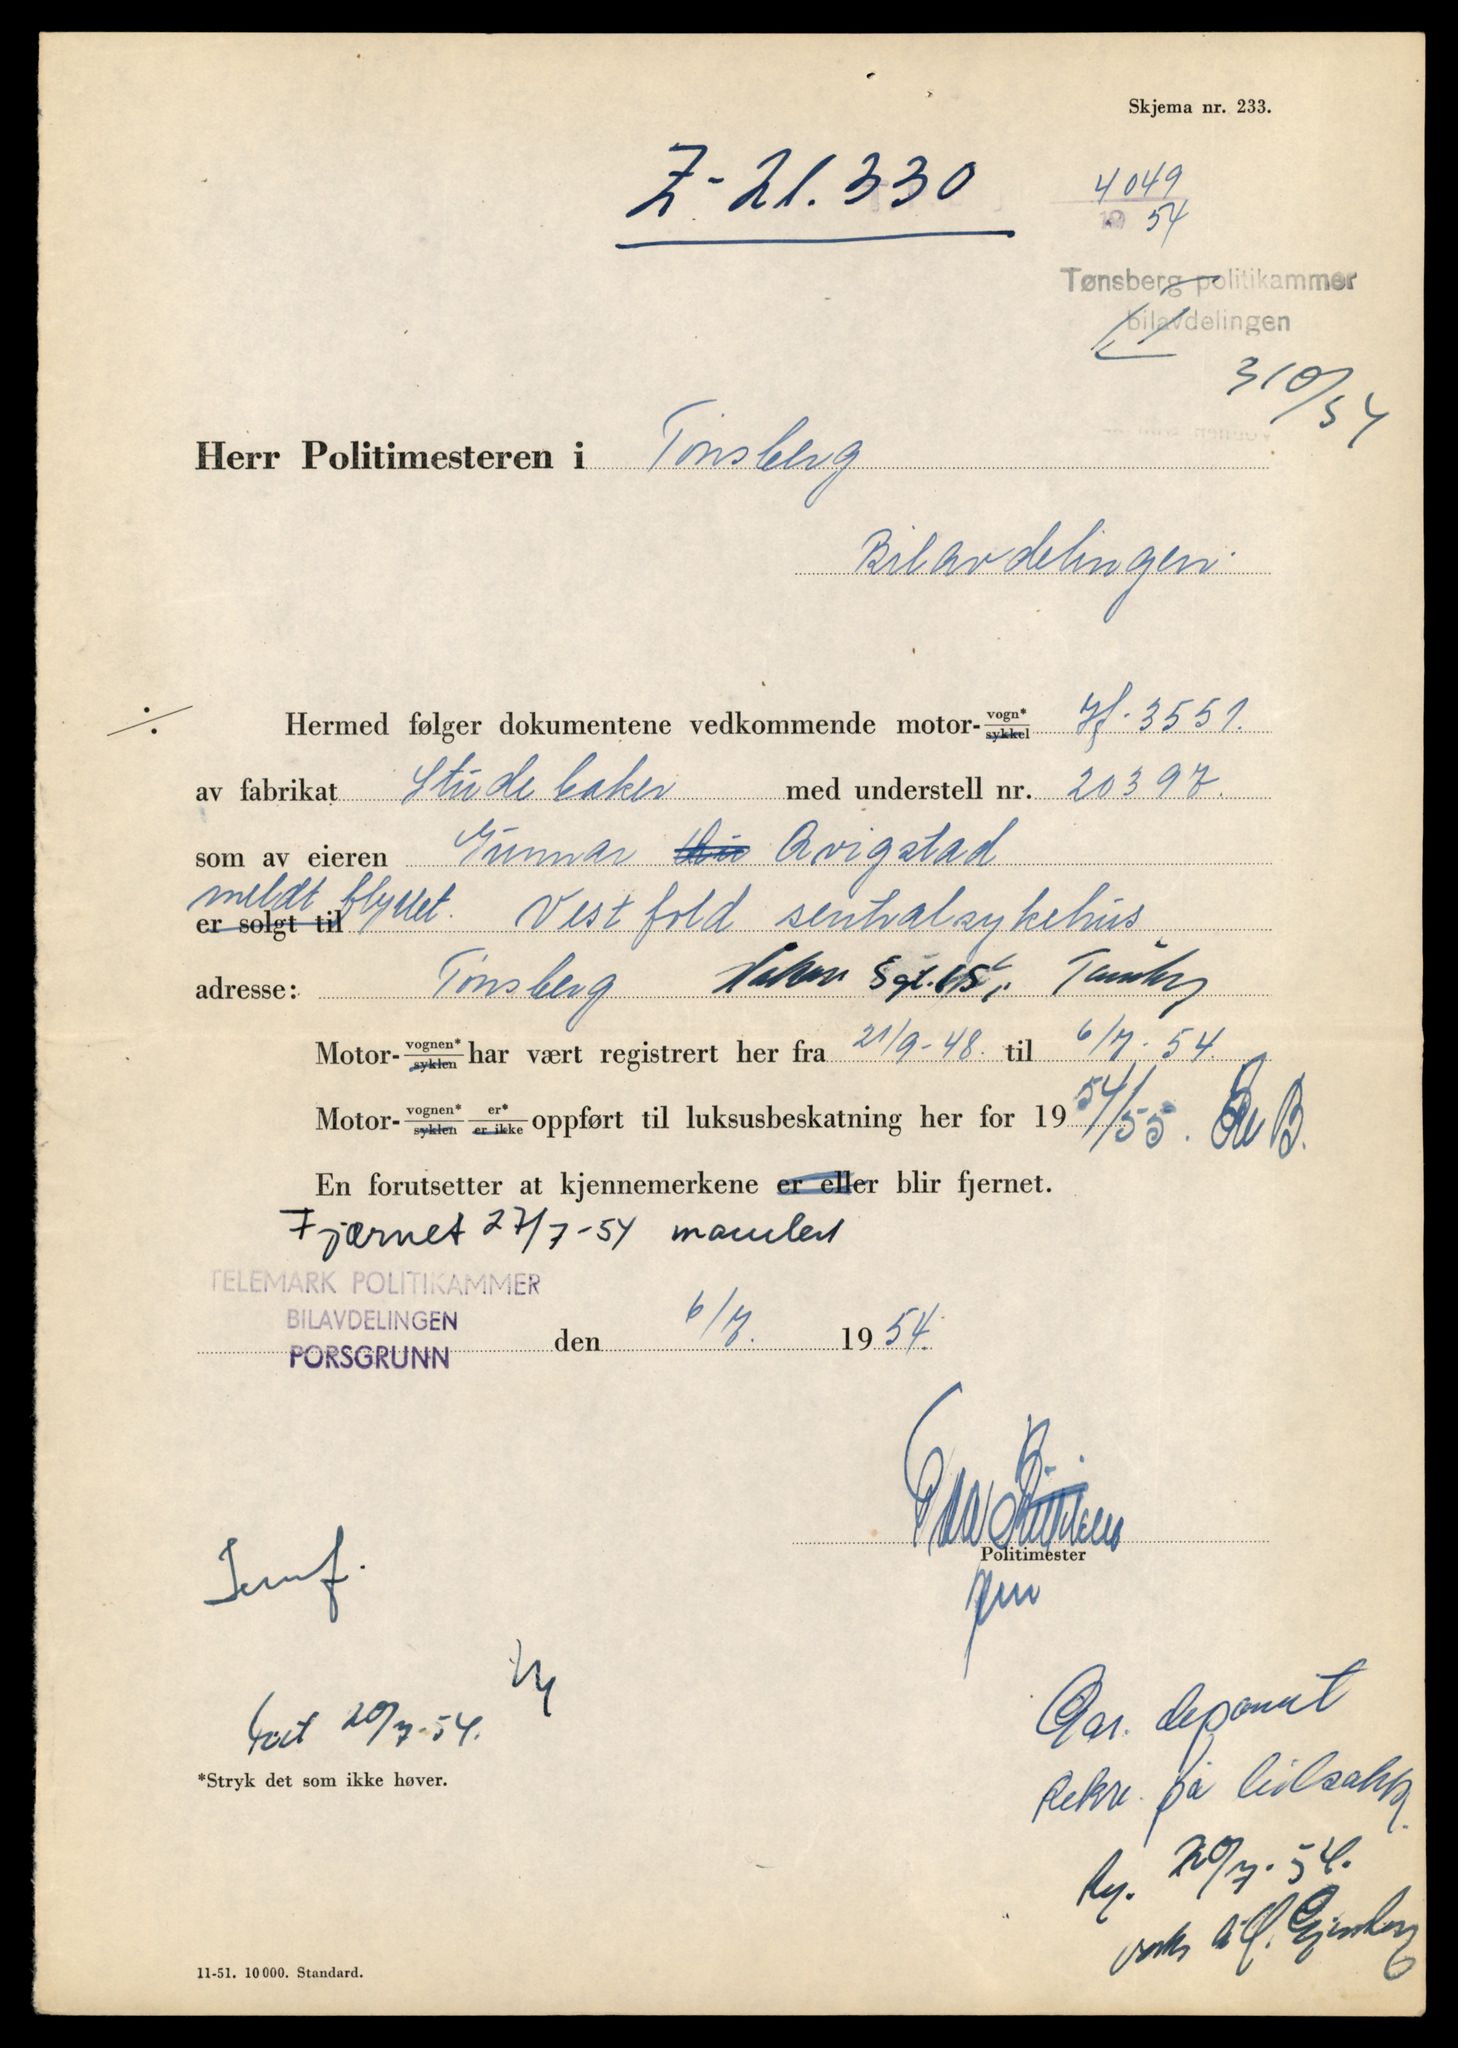 Skjema nr. 233.
Z-21.330
4049
19 54
Tønsberg politikammer
bilavdelingen
310/54
Herr Politimesteren i Tønsberg
Bilavdelingen.
÷ Hermed følger dokumentene vedkommende motor- vogn* sykkel H-3551.
av fabrikat Studebaker med understell nr. 20397.
som av eieren Gunnar Qvigstad
meldt flyttet. Vestfold sentralsykehus
er solgt til
adresse: Tønsberg
Motor- vognen* syklen har vært registrert her fra 21/9-48. til 6/7-54.
Motor- vognen* syklen er* er ikke oppført til luksusbeskatning her for 19 54/55. B.
En forutsetter at kjennemerkene er eller blir fjernet.
Fjærnet 27/7-54
TELEMARK POLITIKAMMER
BILAVDELINGEN
PORSGRUNN den 6/7. 1954.
Politimester
20/7-54.
*Stryk det som ikke høver.
Gar. deponert
på bilsakk.
20/7-54.
11-51. 10 000. Standard.